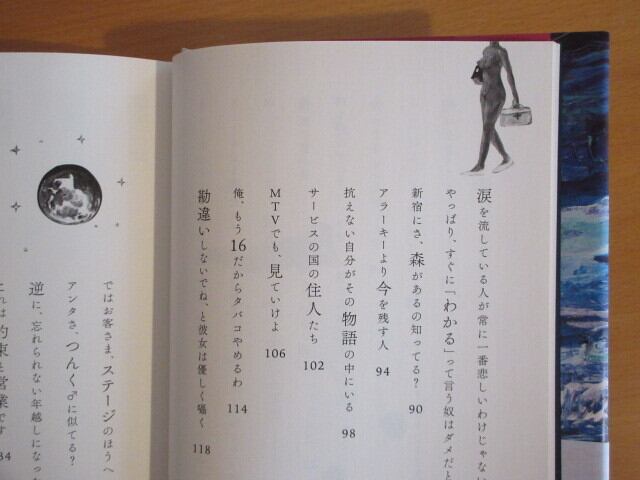 涙を流している人が常に一番悲しいわけじゃない
やっぱり、すぐに「わかる」って言う奴はダメだと
新宿にさ、森があるの知ってる? 90
アラーキーより今を残す人 94
抗えない自分がその物語の中にいる 98
サービスの国の住人たち 102
MTVでも、見ていけよ 106
俺、もう16だからタバコやめるわ 114
勘違いしないでね、と彼女は優しく囁く 118
ではお客さま、ステージのほうへ
アンタさ、つんく♂に似てる?
逆に、忘れられない年越しになっ
これは約束と営業です 84